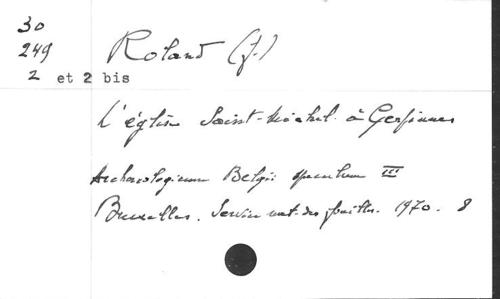 30
249 Roland (J.)
2 et 2 bis
L'église Saint-Michel à Gerpinnes
Archaeologicum Belgii speculum III
Bruxelles. Service nat. des fouilles. 1970. 8